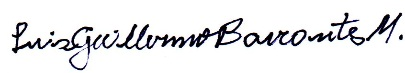 Luis Guillermo Barrantes M.